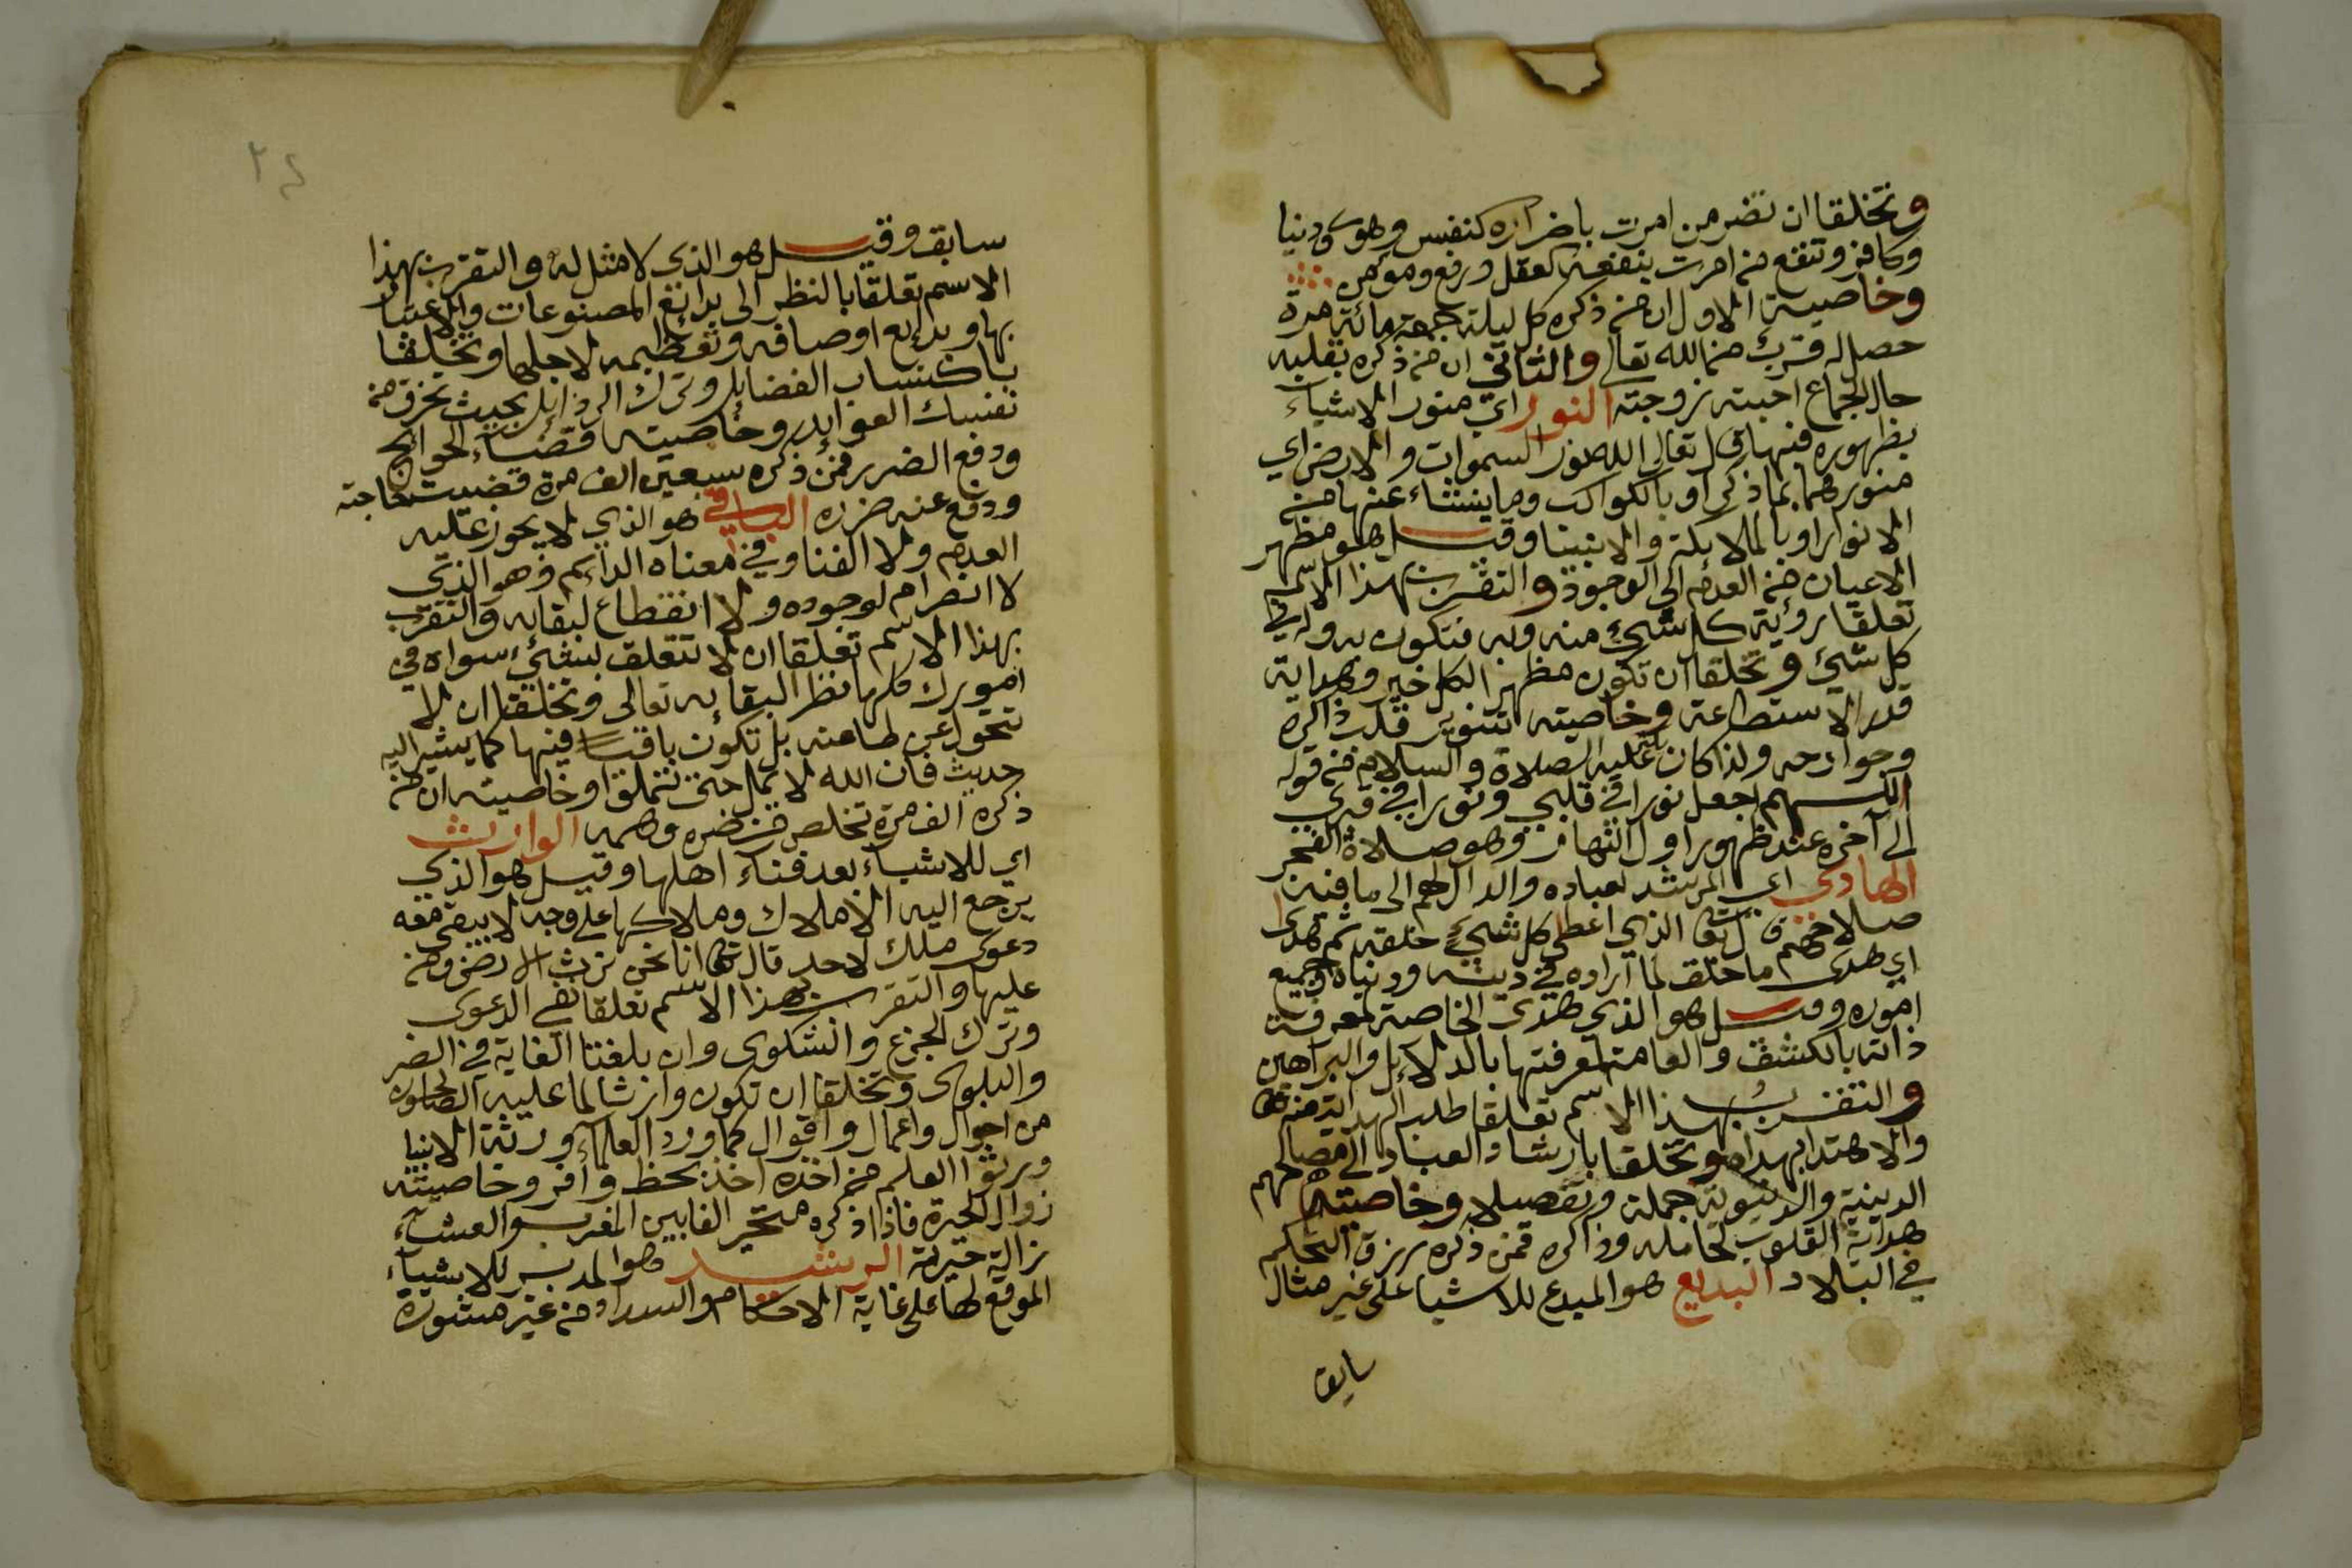 وتخلقا ان تضر من امرت باضراره كنفس وهوى ودنيا
وكافر وتنفع من امرت بنفعه كعقل ورفع ومومن
وخاصية الاول ان من ذكره كل ليلة جمعة مائة مرة
حصل له قرب من الله تعالى والثاني ان من ذكره بقلبه
حال الجماع احبته زوجته النور اي منور الاشياء
بظهوره فيها قال تعالى الله نور السموات والارض اي
منورهما بما ذكر او بالكواكب وما ينشاء عنها من
الانوار او بالملائكة والانبيا وقيل هو مظهر
الاعيان من العدم الى الوجود والتقرب بهذا الاسم
تعلقا رؤية كل شيء منه وبه فتكون به وله في
كل شيء وتخلقا ان تكون مظهرا لكل خير وهداية
قدر الاستطاعة وخاصيته تنوير قلب ذاكره
وجوارحه ولذا كان عليه الصلاة والسلام من قوله
اللهم اجعل نورا في قلبي ونورا في قبري
الى آخره عند ظهور اول النهار وهو صلاة الفجر
الهادي اي المرشد لعباده والدال لهم الى ما فيه
صلاحهم قال تعالى الذي اعطى كل شيء خلقه ثم هدى
اي هدى ما خلق لما اراده في دينه ودنياه وجميع
اموره وقيل هو الذي هدى الخاصة لمعرفة
ذاته بالكشف والعامة لمعرفتها بالدلائل والبراهين
والتقرب بهذا الاسم تعلقا طلب الهداية منه تعالى
والاهتدا بهداه وتخلقا بارشاد العباد الى مصالحهم
الدينية والدنيوية جملة وتفصيلا وخاصيته
هداية القلوب لحامله وذاكره فمن ذكره رزق التحكم
في البلاد البديع هو المبدع للاشيا على غير مثال
سابق
٢٤
سابق وقيل هو الذي لا مثل له والتقرب بهذا
الاسم تعلقا بالنظر الى بدائع المصنوعات والاعتبار
بها وبدايع اوصافه وتعظيمه لاجلها وتخلقا
باكتساب الفضايل وترك الرذايل بحيث تخرق من
نفسك العوايد وخاصيته قضاء الحوائج
ودفع الضرر فمن ذكره سبعين الف مرة قضيت حاجته
ودفع عنه ضره الباقي هو الذي لا يجوز عليه
العدم ولا الفنا وفي معناه الدائم فهو الذي
لا انصرام لوجوده ولا انقطاع لبقايه والتقرب
بهذا الاسم تعلقا ان لا تتعلق بشيء سواه في
امورك كلها نظرا لبقائه تعالى وتخلقا ان لا
تتحول عن طاعته بل تكون باقيا فيها كما يشير اليه
حديث فان الله لا يمل حتى تملوا وخاصيته ان من
ذكره الف مرة تخلص من ضره وهمه الوارث
اي للاشياء بعد فناء اهلها وقيل هو الذي
يرجع اليه الاملاك وملاكها على وجه لا يبقى معه
دعوى ملك لاحد قال تعالى انا نحن نرث الارض ومن
عليها والتقرب بهذا الاسم تعلقا نفي الدعوى
وترك الجزع والشكوى وان بلغتا الغاية في الضر
والبلوى وتخلقا ان تكون وارثا لما عليه الصالحون
من احوال واعمال واقوال كما ورد العلماء ورثة الانبيا
ورثوا العلم فمن اخذه اخذ بحظ وافر وخاصيته
زوال الحيرة فاذا ذكره متحير الفا بين المغرب والعشاء
زالت حيرته الرشيد هو المدبر للاشياء
الموقع لها على غاية الاحكام والسداد من غير مشورة